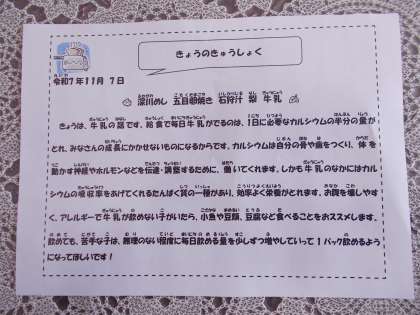 きょうのきゅうしょく
令和7年11月 7日
深川めし 五目卵焼き 石狩汁 梨 牛乳
きょうは、牛乳の話です。給食で毎日牛乳がでるのは、1日に必要なカルシウムの半分の量が
とれ、みなさんの成長にかかせないものになるからです。カルシウムは自分の骨や歯をつくり、体を
動かす神経やホルモンなどを伝達・調整するために、働いてくれます。しかも牛乳のなかにはカル
シウムの吸収率をあげてくれるたんぱく質の一種があり、効率よく栄養がとれます。お腹を壊しやす
く、アレルギーで牛乳が飲めない子がいたら、小魚や豆類、豆腐など食べることをおススメします。
飲めても、苦手な子は、無理のない程度に毎日飲める量を少しずつ増やしていって1パック飲めるよう
になってほしいです!